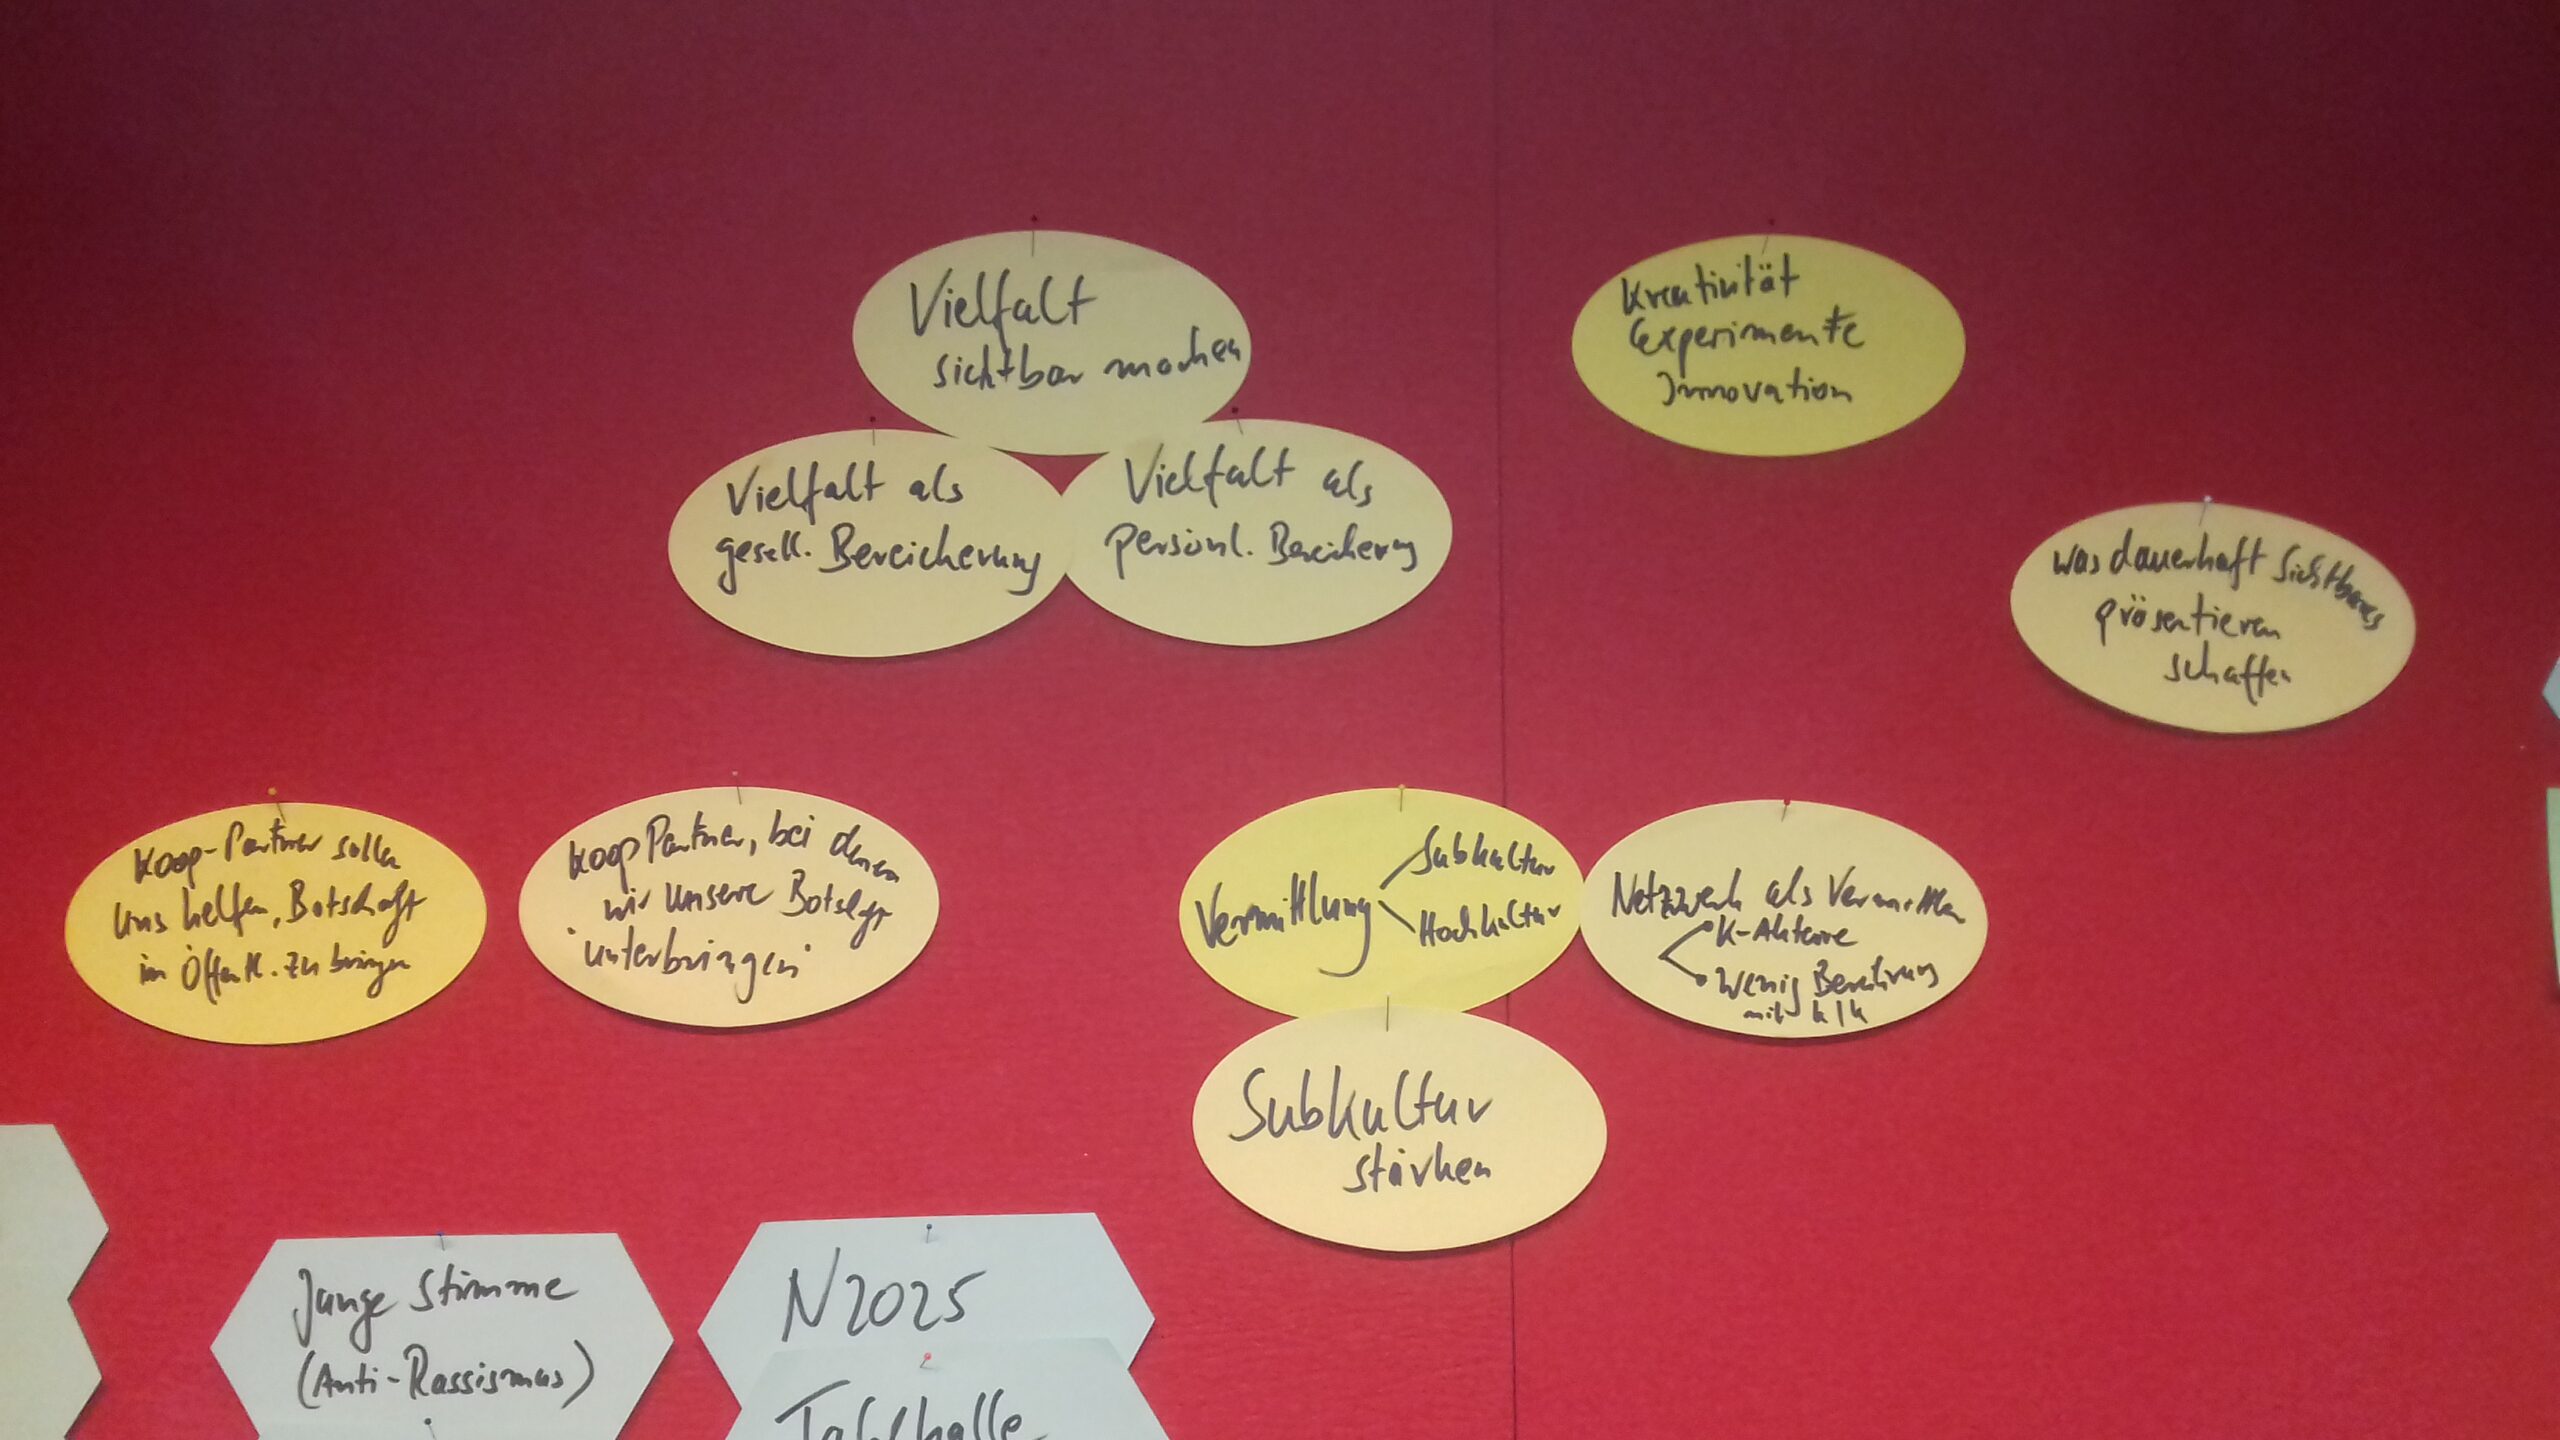 Vielfalt
sichtbar machen
Kreativität
Experimente
Innovation
Vielfalt als
gesell. Bereicherung
Vielfalt als
persönl. Bereicherung
was dauerhaft Sichtbares
präsentieren
schaffen
Koop-Partner sollen
uns helfen, Botschaft
in Öffentl. zu bringen
Koop Partner, bei denen
wir unsere Botschaft
"unterbringen"
Vermittlung
Subkultur
Hochkultur
Netzwerk als Vermittler
K-Akteure
wenig Berührung
mit k/k
Subkultur
stärken
Junge Stimme
(Anti-Rassismus)
N2025
Tafelhalle